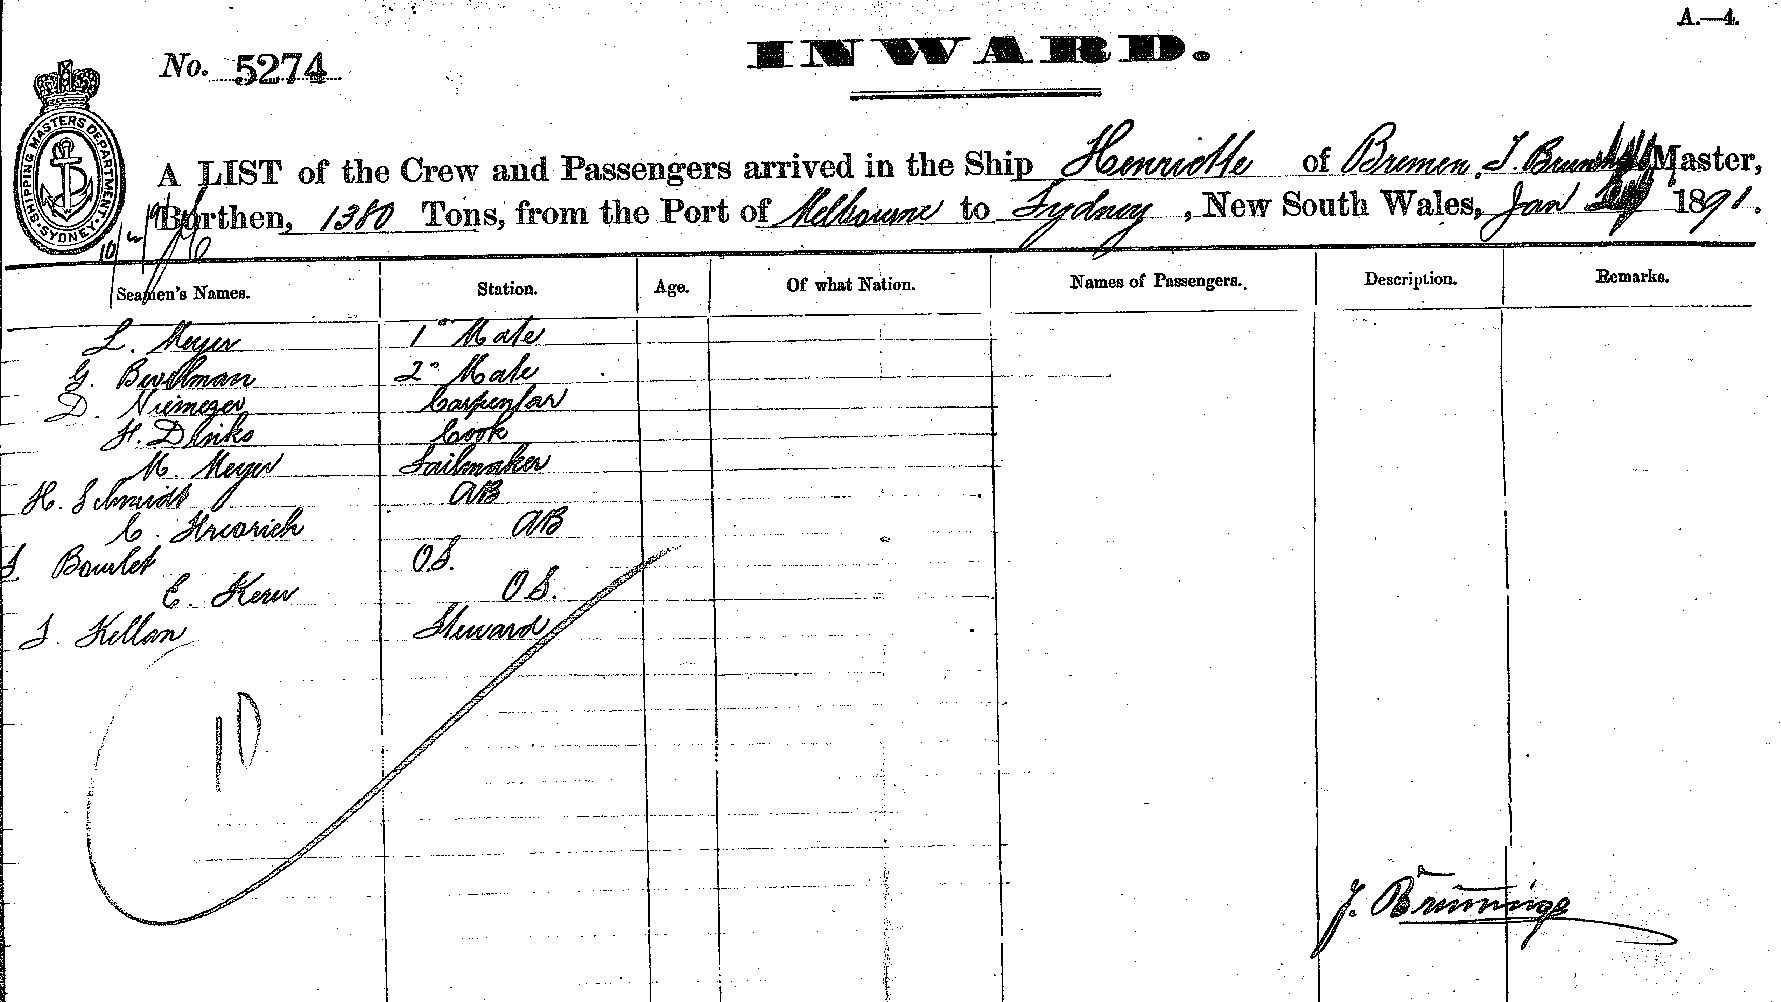 A.—4.
No. 5274
INWARD.
SHIPPING MASTERS DEPARTMENT. SYDNEY.
A LIST of the Crew and Passengers arrived in the Ship Henriette of Bremen, J. Master,
Burthen, 1380 Tons, from the Port of Melbourne to Sydney, New South Wales, Jan 1891.
Seamen's Names. Station. Age. Of what Nation. Names of Passengers. Description. Remarks.
L. Meyer 1º Mate
G. 2º Mate
D. Niemezer Carpentar
H. Dinks Cook
M. Meyer Sailmaker
H. Schmidt AB
C. AB
Bourlet O.S.
C. O.S.
J. Kellan Steward
10
J. Brünings